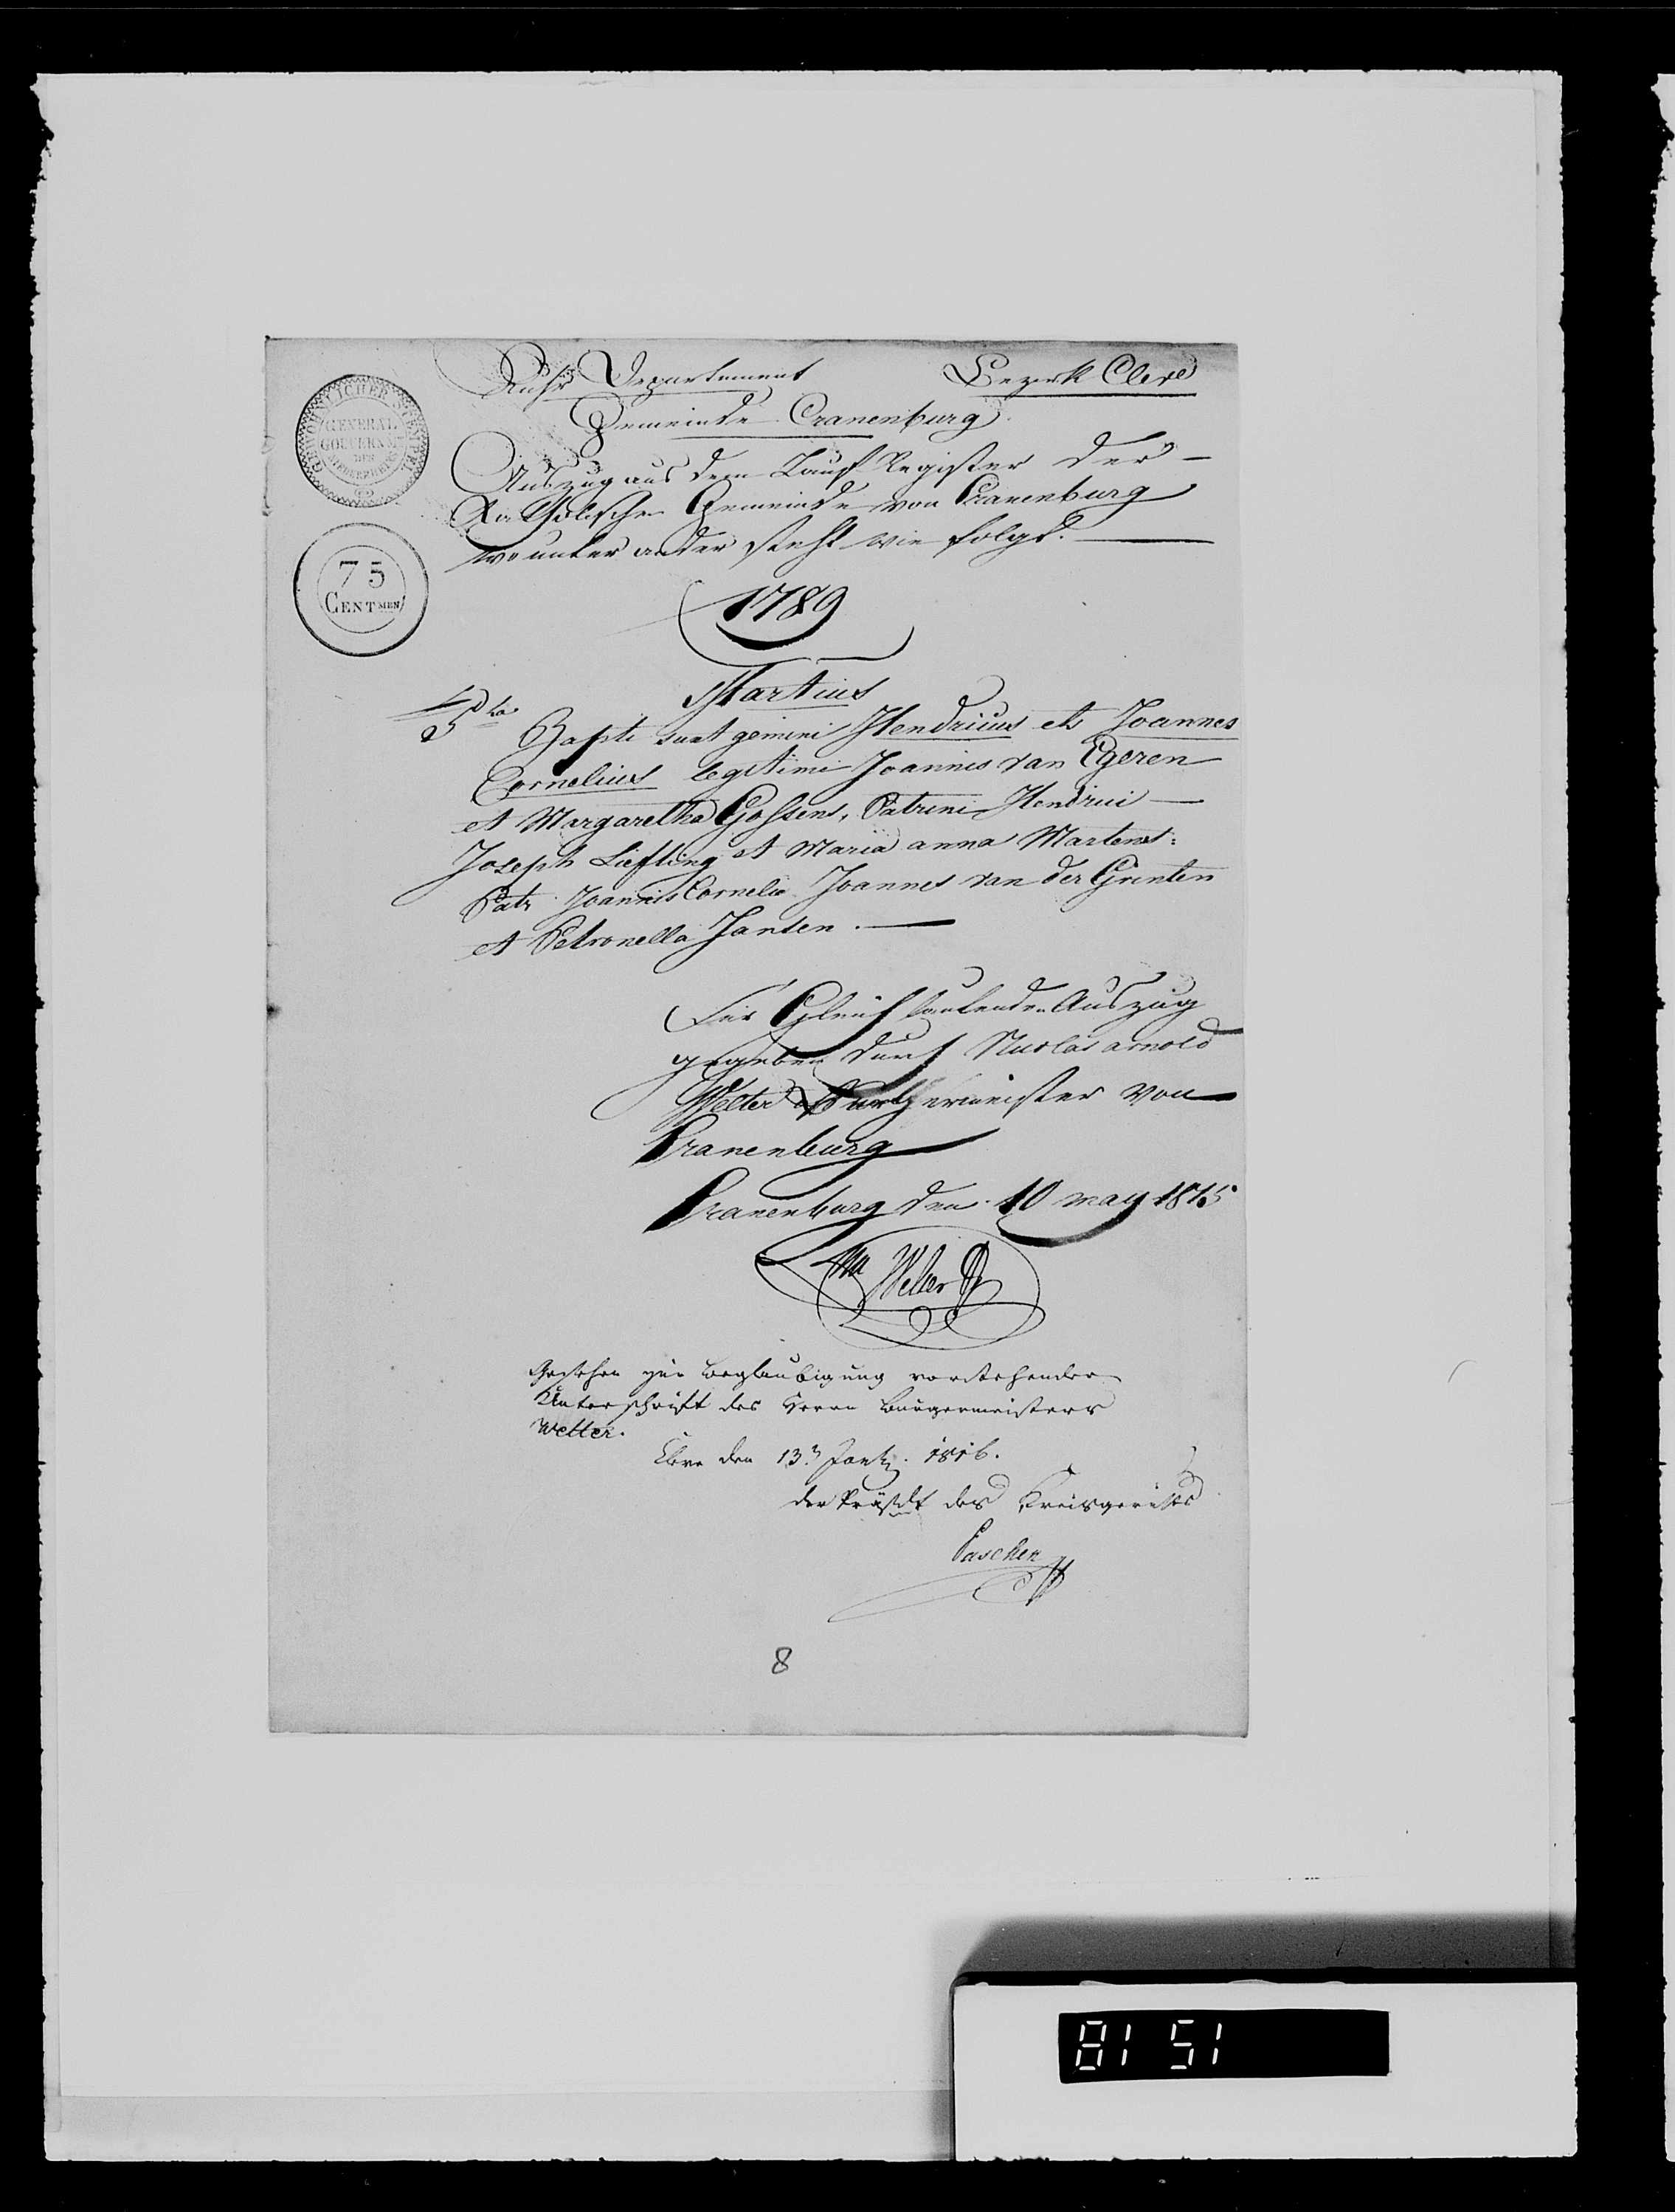 Ruhr Departement Bezirk Cleve
Gemeinde Cranenburg
GEWÖHNLICHER STEMPEL
GENERAL
GOUVERNEMENT
DES
NIEDERRHEINS
Auszug aus dem Tauf Register der
Katholischen Gemeinde von Cranenburg
worunter ander steht wie folgt.
75
CENTIMEN
1789
Martius
5ta Bapti sunt gemini Hendricus et Joannes
Cornelius legitimi Joannis van Egeren
et Margaretha Gossens, Patrini Hendrici
Joseph Liefting et Maria anna Martens:
Patr Joannis Cornelio Joannes van der Grinten
et Petronella Jansen.
Für Gleich lautenden Auszug
gegeben durch Nicolas arnold
Welter Burgermeister von
Cranenburg
Cranenburg den 10 may 1815
Na Welter
Gesehen zur Beglaubigung vorstehender
Unterschrift des Herrn Bürgermeisters
Welter.
Cleve den 13 1816.
der Präsdt des Kreisgerichts
Paschen
8
81 51